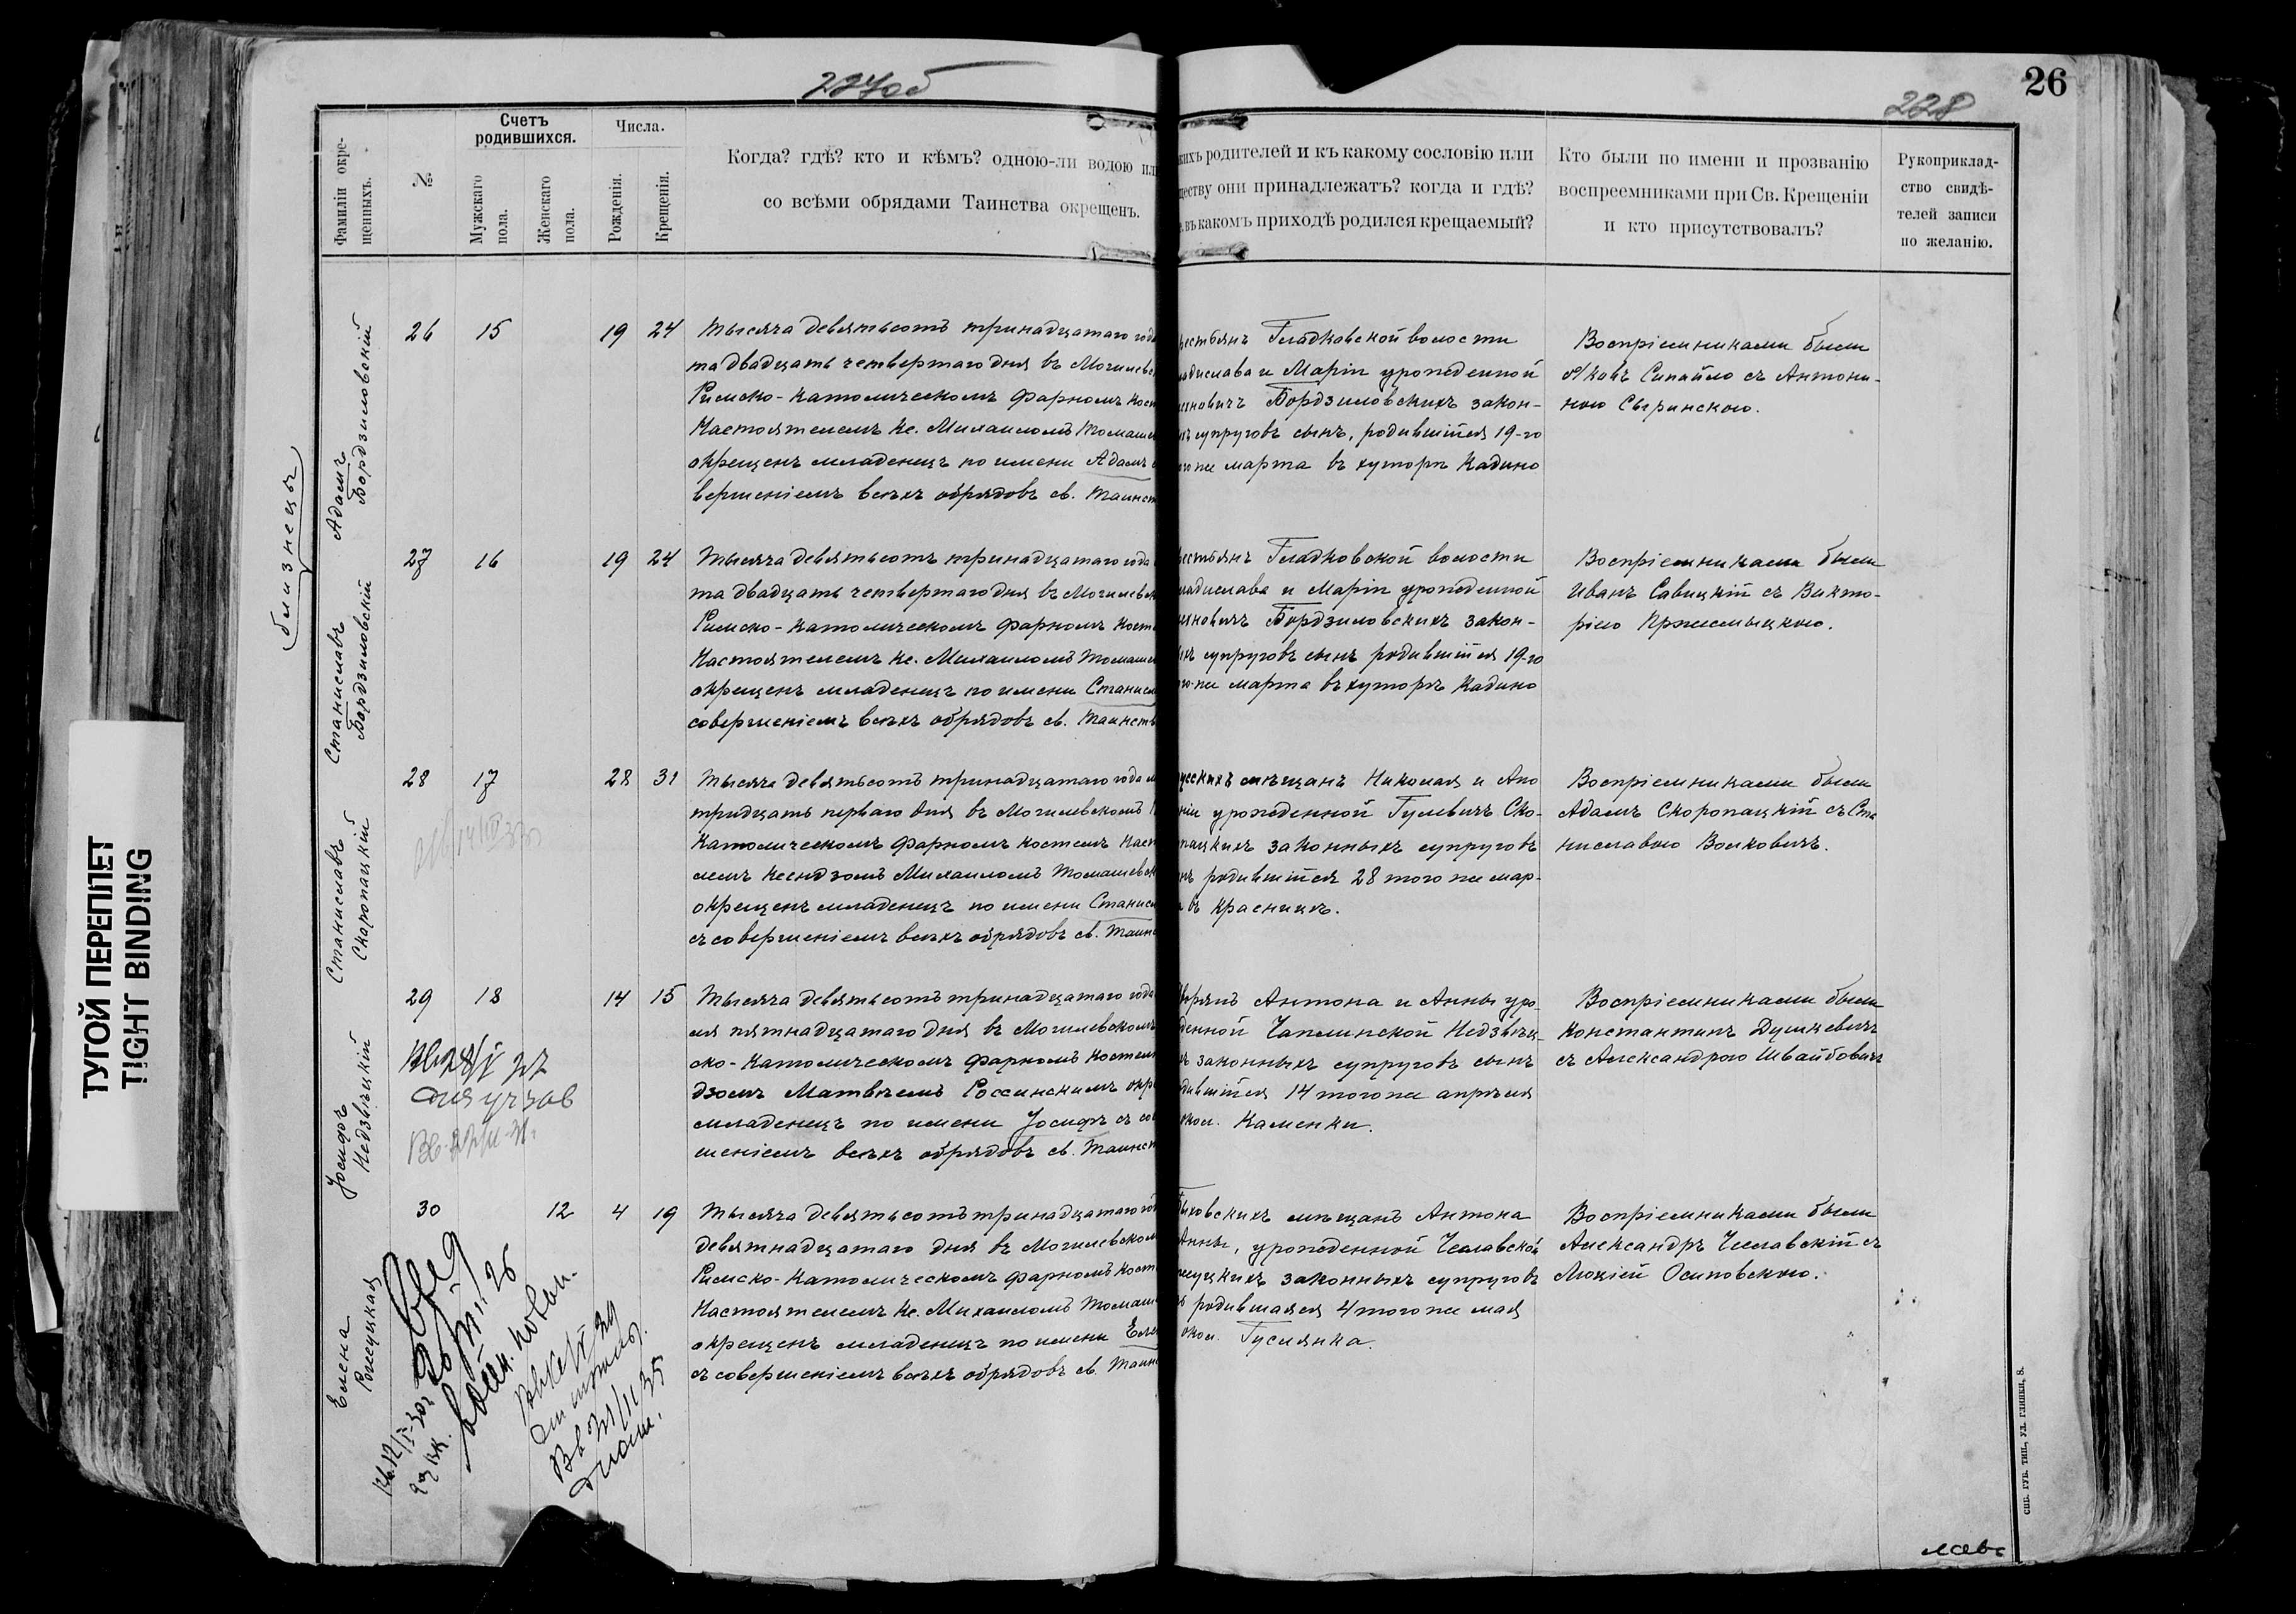 227об
26
228
Фамиліи окре-
щенныхъ.
№
Счетъ
родившихся.
Мужскаго
пола.
Женскаго
пола.
Числа.
Рожденія.
Крещенія.
Когда? гдѣ? кто и кѣмъ? одною-ли водою ил
со всѣми обрядами Таинства окрещенъ.
кихъ родителей и къ какому сословію или
ществу они принадлежатъ? когда и гдѣ?
въ какомъ приходѣ родился крещаемый?
Кто были по имени и прозванію
воспреемниками при Св. Крещеніи
и кто присутствовалъ?
Рукоприклад-
ство свидѣ-
телей записи
по желанію.
ТУГОЙ ПЕРЕПЛЕТ
TIGHT BINDING
близнецы
Адамъ
Бордзиловскій
26 15 19 24
Тысяча девятьсотъ тринадцатаго года
та двадцать четвертаго дня въ Могилевс
Римско-Католическомъ фарномъ кост
Настоятелемъ Кс. Михаиломъ Томаше
окрещенъ младенецъ по имени Адамъ с
вершеніемъ всѣхъ обрядовъ св. Таинст
естьянъ Гладковской волости
адислава и Маріи урожденной
новичъ Бордзиловскихъ закон-
хъ супруговъ сынъ, родившійся 19-го
го же марта въ хуторѣ Кадино
Воспріемниками были
Сипайло съ Антони-
ною Сыринскою.
Станиславъ
Бордзиловскій
27 16 19 24
Тысяча девятьсотъ тринадцатаго года
та двадцать четвертаго дня въ Могилевск
Римско-Католическомъ фарномъ косте
Настоятелемъ Кс. Михаиломъ Томаше
окрещенъ младенецъ по имени Станисл
совершеніемъ всѣхъ обрядовъ св. Таинств
естьянъ Гладковской волости
адислава и Маріи урожденной
новичъ Бордзиловскихъ закон-
хъ супруговъ сынъ родившійся 19-го
го-же марта въ хуторѣ Кадино
Воспріемниками были
Иванъ Савицкій съ Викто-
ріею Пржемыцкою.
Станиславъ
Скоропацкій
28 17 28 31
Тысяча девятьсотъ тринадцатаго года м
тридцать перваго дня въ Могилевскомъ
Католическомъ фарномъ костелѣ Наст
лемъ Ксендзомъ Михаиломъ Томашевск
окрещенъ младенецъ по имени Станисл
съ совершеніемъ всѣхъ обрядовъ св. Таин
усскихъ мѣщанъ Николая и Апо
ніи урожденной Гулевичъ Ско-
пацкихъ законныхъ супруговъ
нъ родившійся 28 того же мар-
въ Красницѣ.
Воспріемниками были
Адамъ Скоропацкій съ Ста
ниславою Волковичъ.
Іосифъ
Недзвѣцкій
29 18 14 15
Тысяча девятьсотъ тринадцатаго года
ля пятнадцатаго дня въ Могилевскомъ
ско-Католическомъ фарномъ костел
дзомъ Матвѣемъ Россинскимъ окр
младенецъ по имени Іосифъ съ сов
шеніемъ всѣхъ обрядовъ св. Таинст
ворянъ Антона и Анны уро-
денной Чаплинской Недзвѣц-
законныхъ супруговъ сынъ
дившійся 14 того же апрѣля
окол. Каменки.
Воспріемниками были
Константинъ Душкевичъ
съ Александрою Швайбовичъ
Елена
Ромуцкая
30 12 4 19
Тысяча девятьсотъ тринадцатаго год
девятнадцатаго дня въ Могилевском
Римско-Католическомъ фарномъ кост
Настоятелемъ Кс. Михаиломъ Томаш
окрещенъ младенецъ по имени Еле
съ совершеніемъ всѣхъ обрядовъ св. Таин
ыховскихъ мѣщанъ Антона
Анны, урожденной Чеславской
муцкихъ законныхъ супруговъ
родившаяся 4 того же мая
окол. Гуслянка.
Воспріемниками были
Александръ Чеславскій съ
Люціей Осиповскою.
СПБ. ГУБ. ТИП., УЛ. ГЛИНКИ, 8.